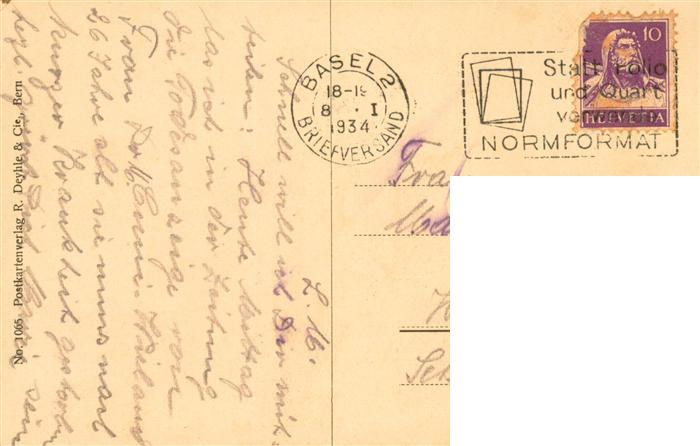 BASEL 2
18-19
8. I
1934
BRIEFVERSAND
Statt Folio
und Quart
NORMFORMAT
10
HELVETIA
L. M.
Schnell will ich Dir mit-
teilen: Heute Mittag
las ich in der Zeitung
die Todesanzeige von
Frau Dr.
26 Jahre alt sie muss nach
kurzer Krankheit gestorben
sein
No. 1065 Postkartenverlag R. Deyhle & Cie., Bern